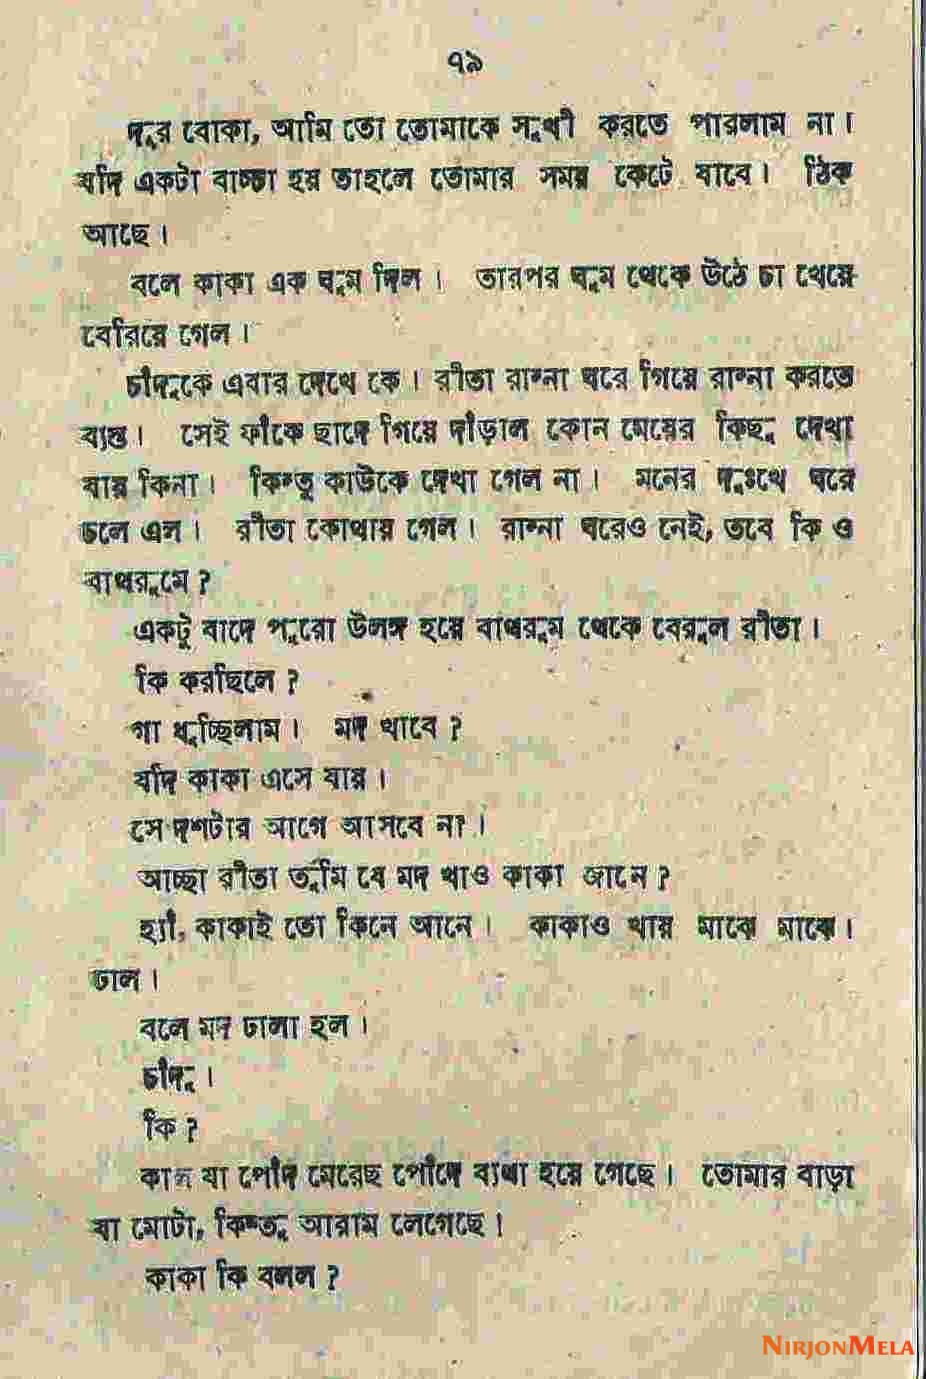 ৭৯
দূর বোকা, আমি তো তোমাকে সুখী করতে পারলাম না।
যদি একটা বাচ্চা হয় তাহলে তোমার সময় কেটে যাবে। ঠিক
আছে।
বলে কাকা এক ঘুম দিল। তারপর ঘুম থেকে উঠে চা খেয়ে
বেরিয়ে গেল।
চাঁদুকে এবার দেখে কে। রীতা রান্না ঘরে গিয়ে রান্না করতে
ব্যস্ত। সেই ফাঁকে ছাদে গিয়ে দাঁড়াল কোন মেয়ের কিছু দেখা
যায় কিনা। কিন্তু কাউকে দেখা গেল না। মনের দুঃখে ঘরে
চলে এল। রীতা কোথায় গেল। রান্না ঘরেও নেই, তবে কি ও
বাথরুমে?
একটু বাদে পুরো উলঙ্গ হয়ে বাথরুম থেকে বেরুল রীতা।
কি করছিলে?
গা ধুচ্ছিলাম। মদ খাবে?
যদি কাকা এসে যায়।
সে দশটার আগে আসবে না।
আচ্ছা রীতা তুমি যে মদ খাও কাকা জানে?
হ্যাঁ, কাকাই তো কিনে আনে। কাকাও খায় মাঝে মাঝে।
ঢাল।
বলে মদ ঢালা হল।
চাঁদু।
কি?
কাল যা পোঁদ মেরেছ পোঁদে ব্যথা হয়ে গেছে। তোমার বাড়া
যা মোটা, কিন্তু আরাম লেগেছে।
কাকা কি বলল?
NIRJONMELA